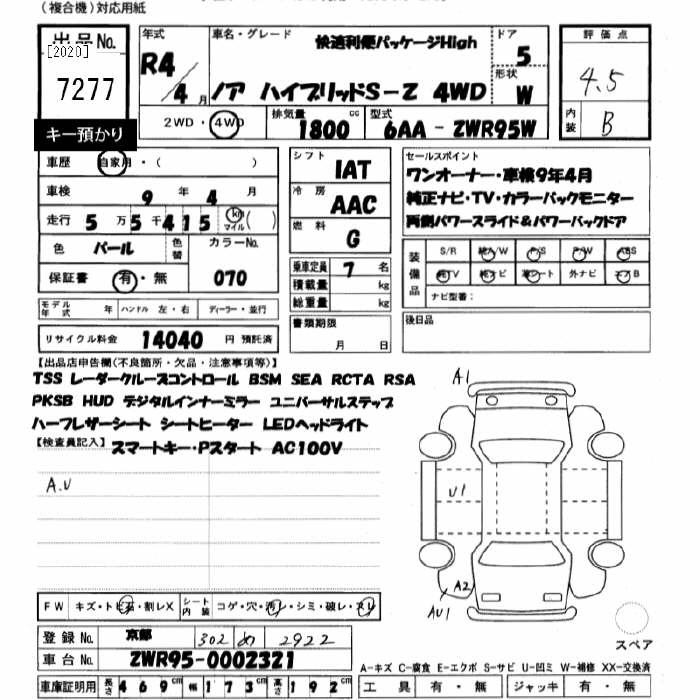 (複合機)対応用紙
出品No.
[2020]
7277
キー預かり
年式
R4/4月
車名・グレード
快適利便パッケージHigh
ノア ハイブリッドS-Z 4WD
ドア
5
形状
W
2WD・4WD
排気量
1800 cc
型式
6AA - ZWR95W
評価点
4.5
内装
B
車歴 自家用・( )
車検 9年 4月
走行 5万5千415 (km マイル)( )
色 パール 色替 カラーNo.
保証書 有・無 070
モデル年式 年 ハンドル 左・右 ディーラー・並行
リサイクル料金 14040 円 預託済
シフト IAT
冷房 AAC
燃料 G
乗車定員 7 名
積載量 kg
総重量 kg
書類期限
月 日
セールスポイント
ワンオーナー・車検9年4月
純正ナビ・TV・カラーバックモニター
両側パワースライド&パワーバックドア
装備品
S/R 純A/W P/S P/W ABS
純TV 純ナビ 革シート 外ナビ エアB
ナビ型番:
後日品
【出品店申告欄(不良箇所・欠品・注意事項等)】
TSS レーダークルーズコントロール BSM SEA RCTA RSA
PKSB HUD デジタルインナーミラー ユニバーサルステップ
ハーフレザーシート シートヒーター LEDヘッドライト
【検査員記入】 スマートキー・Pスタート AC100V
A.U
A1
U1
A2
AU1
FW キズ・トビ石・割レX シート内装 コゲ・穴・汚レ・シミ・破レ・スレ
登録No. 京都 302 め 2922
車台No. ZWR95-0002321
車庫証明用 長さ 469cm 幅 173cm 高さ 192cm
スペア
A-キズ C-腐食 E-エクボ S-サビ U-凹ミ W-補修 XX-交換済
工具 有・無 ジャッキ 有・無